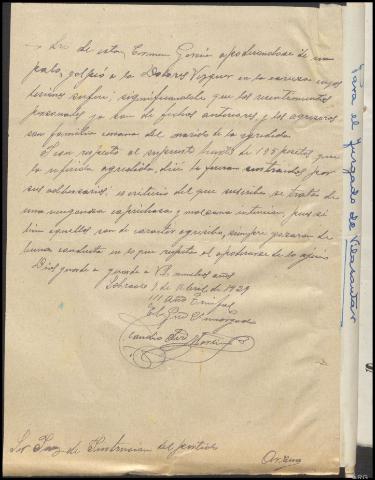 de esta, Carmen García apoderandose de un
palo, golpeó a la Dolores Vazquez en la cabeza cuyas
lesiones sufrio; significandole que los resentimientos
personales ya son de fechas anteriores y los agresores
son familia cercana del marido de la agredida.
Y con respecto al supuesto hurto de 185 pesetas que
la referida agredida, dice le fueran sustraidas por
sus adversarios, a criterio del que suscribe se trata de
una venganza caprichosa y mala intencion, pues si
bien aquellos son de caracter agresivo, siempre gozaron de
buena conducta en lo que respeta al apoderarse de lo ajeno
Dios guarde a V. muchos años
Sobrado 9 de Abril de 1939
III Año Triunfal
El Encargado
Sr Juez de Instruccion del partido
Arzua
Para el Juzgado de Vilasantar